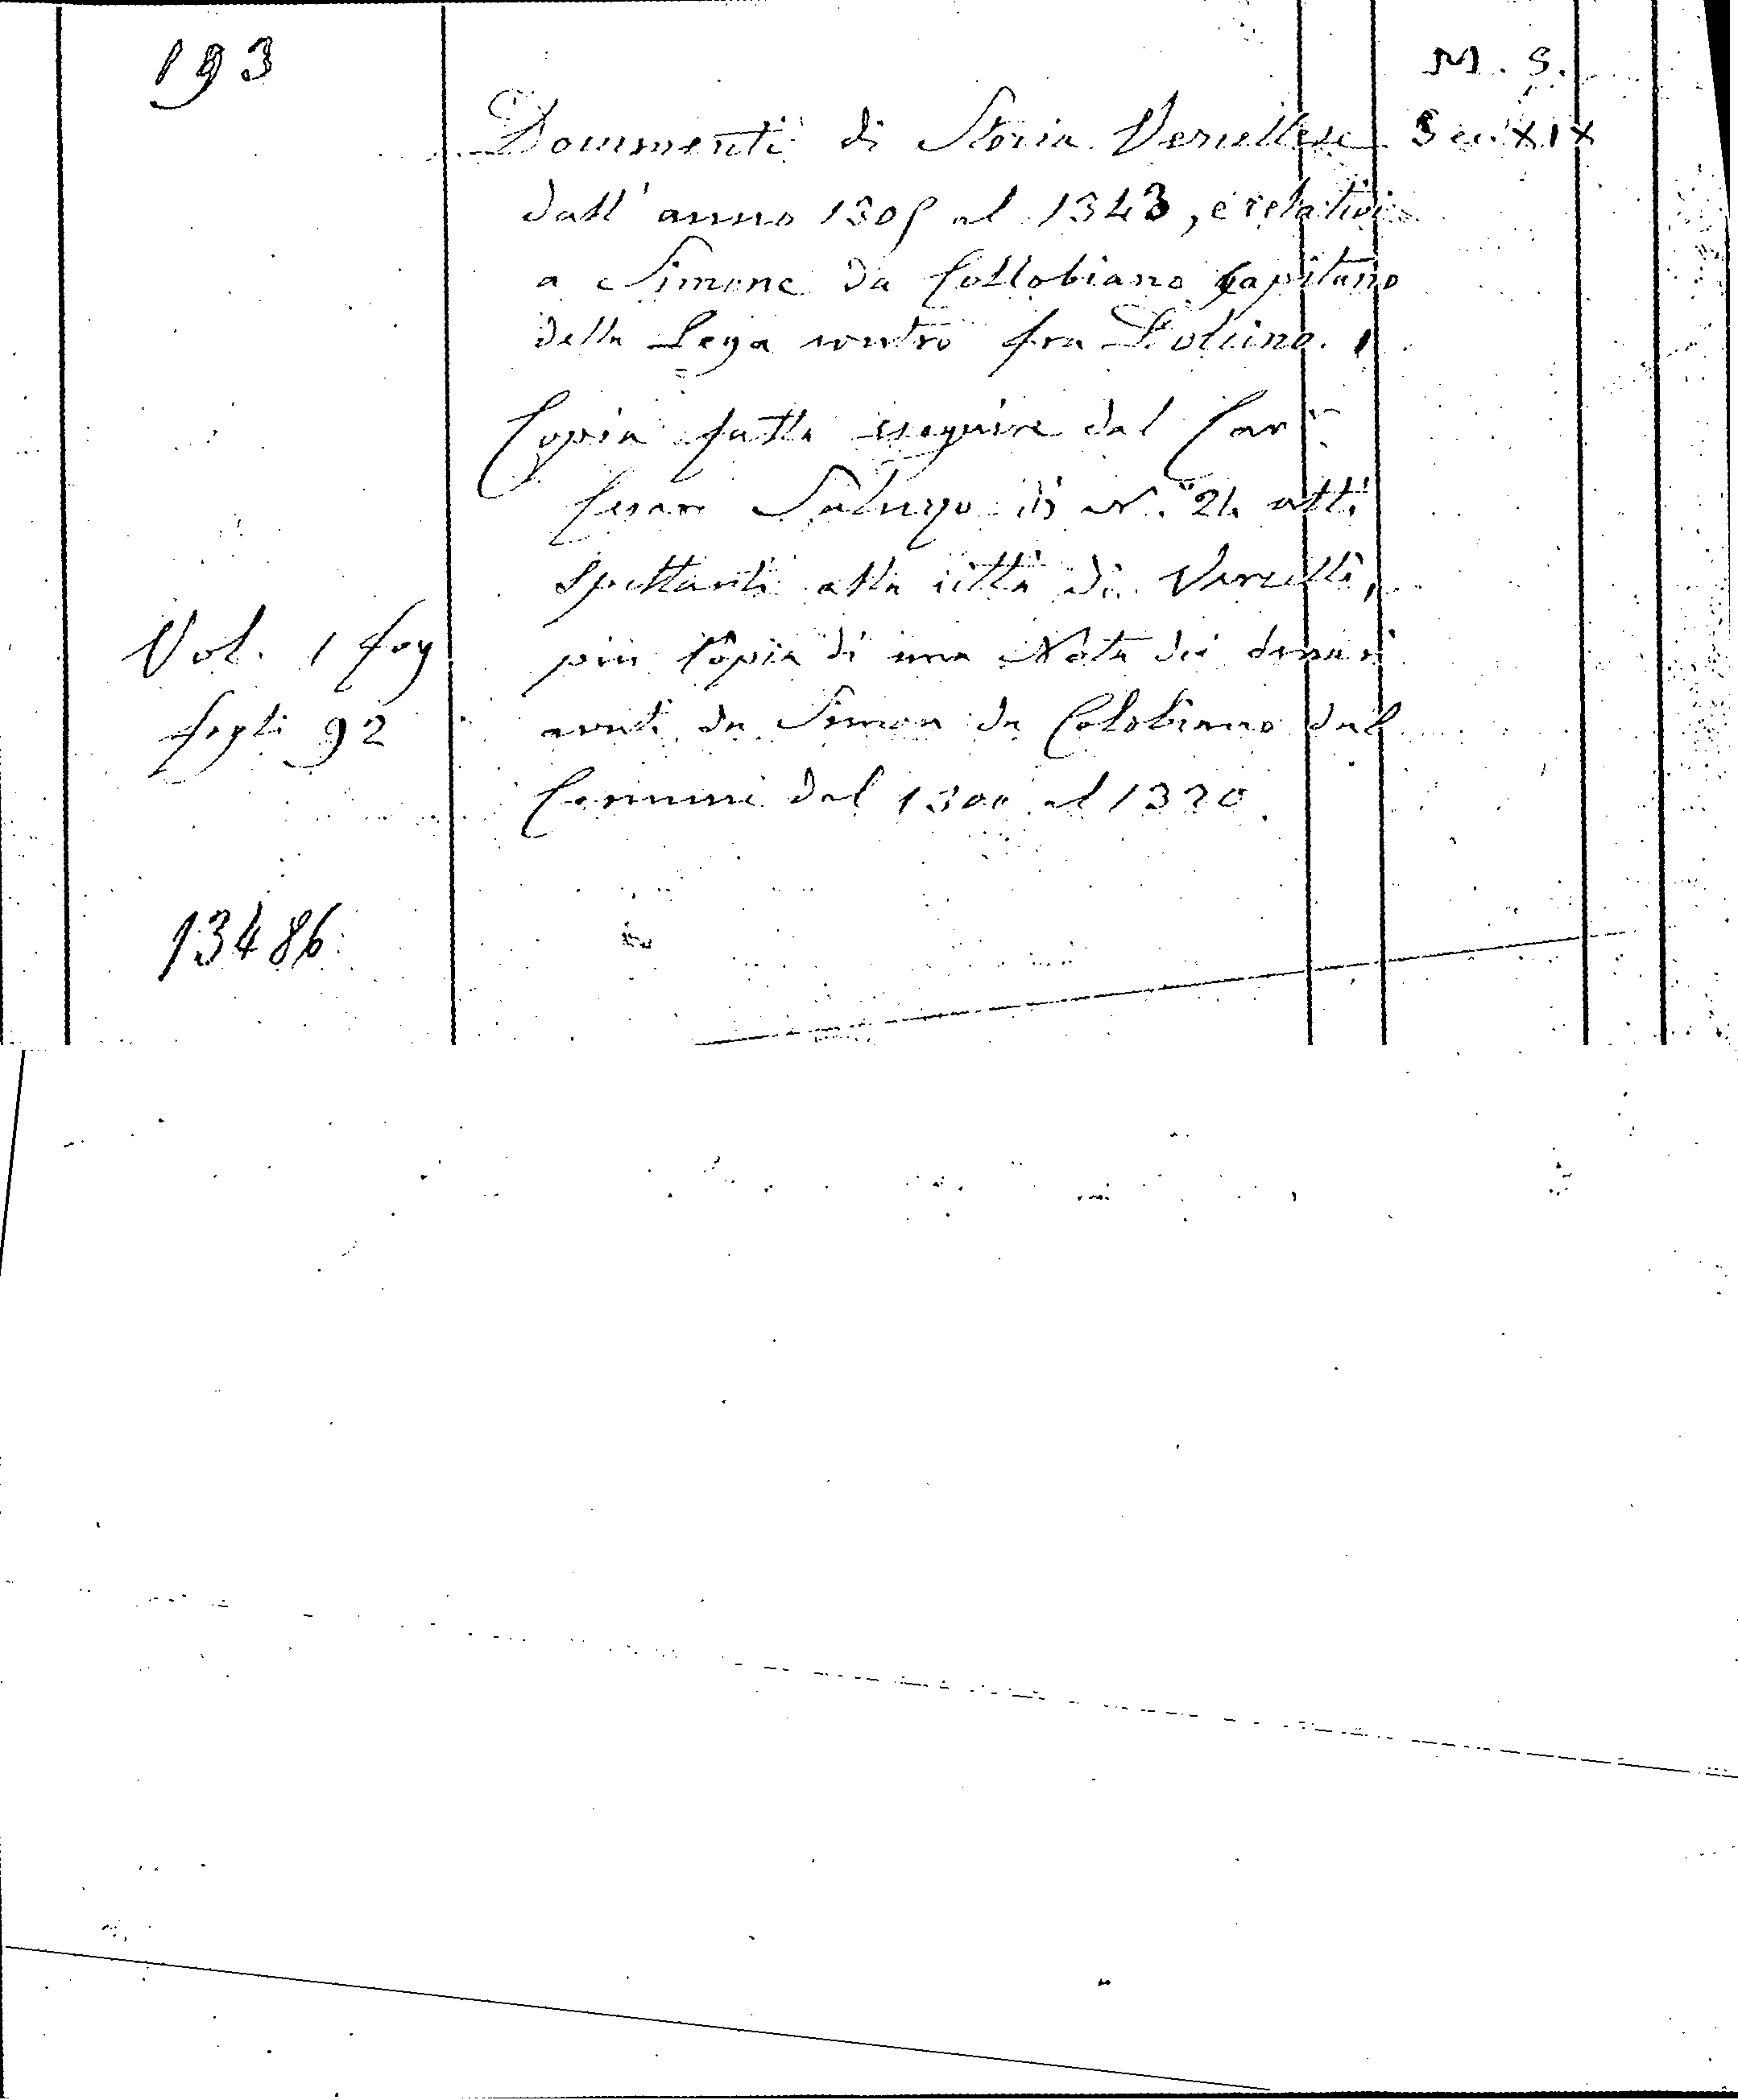 193
M. S.
Documenti di Storia Vercellese Sec. XIX
dall' anno 1305 al 1343, e relativi
a Simone da Collobiano Capitano
della Lega contro fra Dolcino.
Copia fatta eseguire dal Cav.
Cesare Saluzzo di N.° 24 atti
Spettanti alla città di Vercelli,
Vol. 1 fog
più Copia di una Nota dei denari
fogli 92
avuti da Simon da Colobiano dal
Comune dal 1300 al 1320.
13486